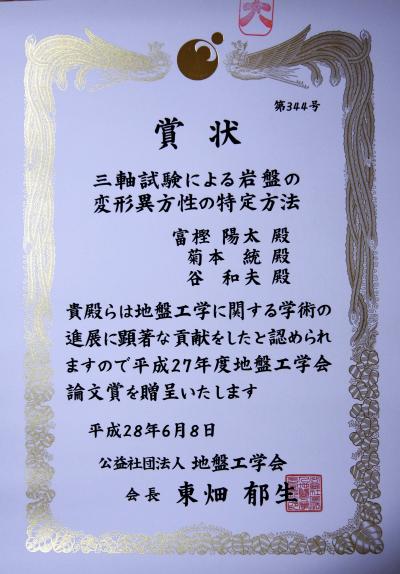 第344号
賞状
三軸試験による岩盤の
変形異方性の特定方法
富樫 陽太 殿
菊本 統 殿
谷 和夫 殿
貴殿らは地盤工学に関する学術の
進展に顕著な貢献をしたと認められ
ますので平成27年度地盤工学会
論文賞を贈呈いたします
平成28年6月8日
公益社団法人 地盤工学会
会長 東畑 郁生